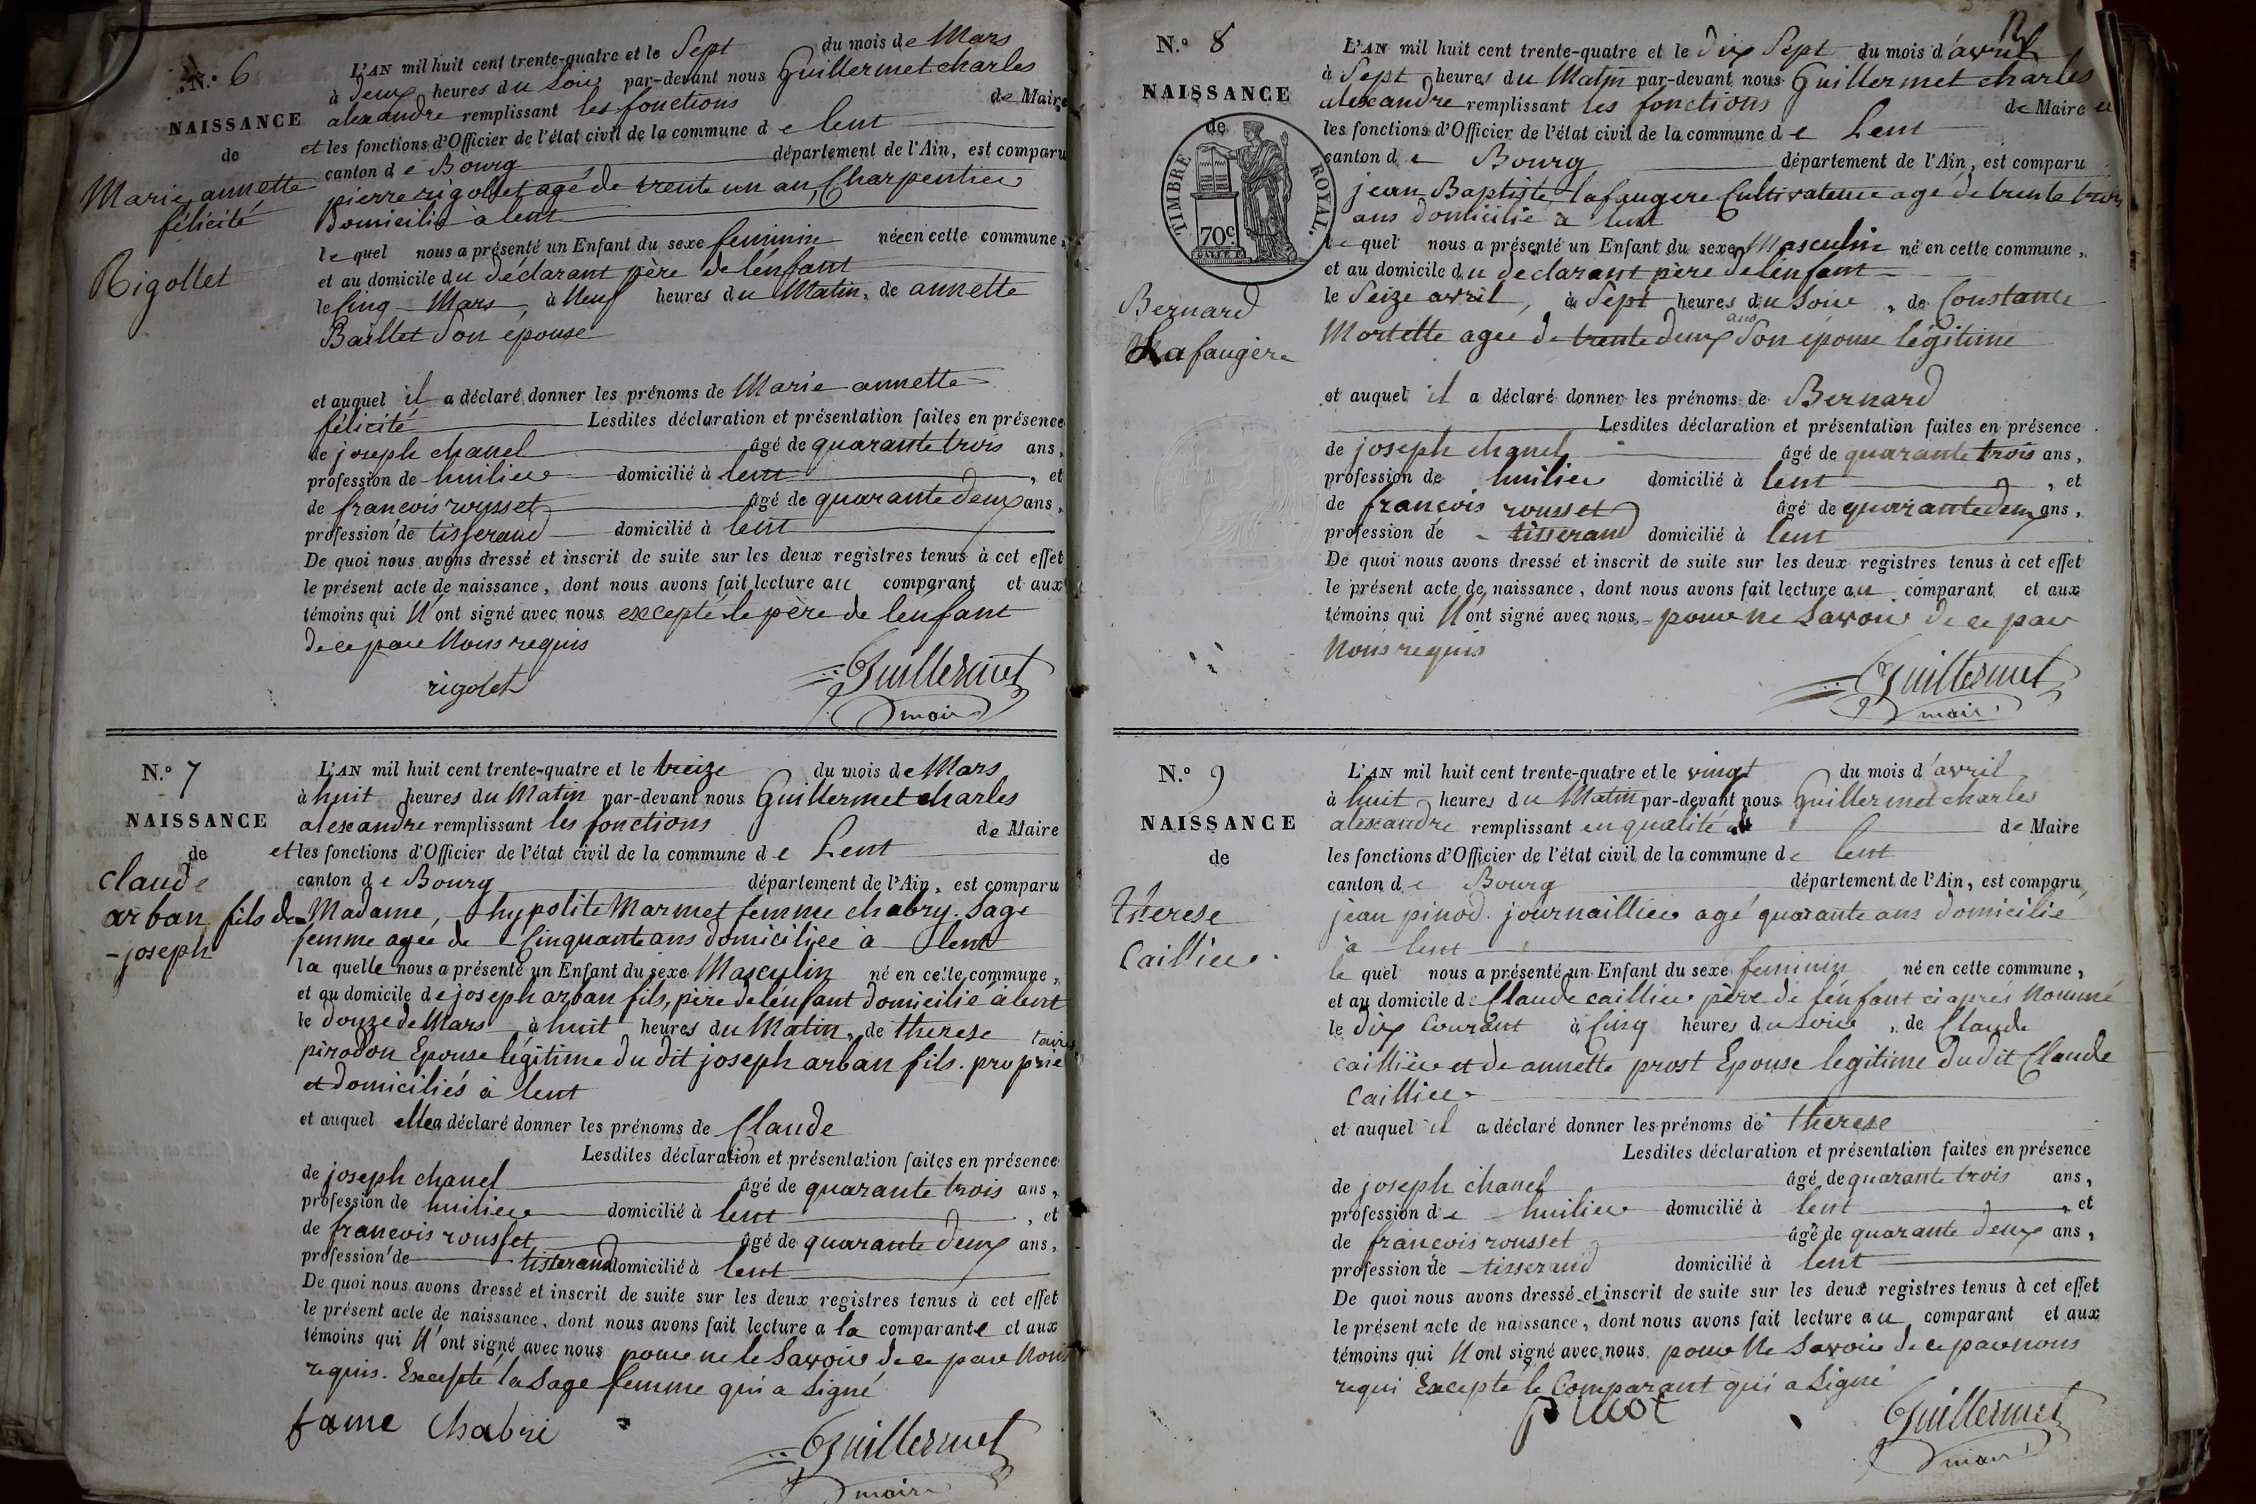 N.º 6
NAISSANCE
de
Marie annette
félicité
Rigollet
L'AN mil huit cent trente-quatre et le Sept du mois de Mars
à deux heures du Soir par-devant nous Guillermet charles
alexandre remplissant les fonctions de Maire
et les fonctions d'Officier de l'état civil de la commune de lent
canton de Bourg département de l'Ain, est comparu
pierre rigollet agé de trente un an, Charpentier
domicilié a lent
le quel nous a présenté un Enfant du sexe feminin née en cette commune,
et au domicile du déclarant père de lénfant
le Cinq Mars, à Neuf heures du Matin, de annette
Baillet Son épouse
et auquel il a déclaré donner les prénoms de Marie annette
félicité Lesdites déclaration et présentation faites en présence
de joseph chanel âgé de quarante trois ans,
profession de huilier domicilié à lent, et
de francois rousset âgé de quarante deux ans,
profession de tisserand domicilié à lent
De quoi nous avons dressé et inscrit de suite sur les deux registres tenus à cet effet
le présent acte de naissance, dont nous avons fait lecture au comparant et aux
témoins qui N'ont signé avec nous excepté le père de lenfant
de ce par Nous requis
rigolet
Guillermet
maire
N.º 7
NAISSANCE
de
claude
arban fils de
-joseph
L'AN mil huit cent trente-quatre et le treize du mois de Mars
à huit heures du Matin par-devant nous Guillermet charles
alexandre remplissant les fonctions de Maire
et les fonctions d'Officier de l'état civil de la commune de Lent
canton de Bourg département de l'Ain, est comparu
Madame, hypolite Marmet femme chabry. Sage
femme agée de Cinquante ans domiciliée à lent
la quelle nous a présenté un Enfant du sexe Masculin né en cette commune,
et au domicile de joseph arban fils, père de lénfant domicilié à lent
le douze de Mars à huit heures du Matin, de therese
pirodon Epouse légitime du dit joseph arban fils. proprié taires
et domiciliés à lent
et auquel elle a déclaré donner les prénoms de Claude
Lesdites déclaration et présentation faites en présence
de joseph chanel âgé de quarante trois ans,
profession de huilier domicilié à lent, et
de francois rousset âgé de quarante deux ans,
profession de tisserand domicilié à lent
De quoi nous avons dressé et inscrit de suite sur les deux registres tenus à cet effet
le présent acte de naissance, dont nous avons fait lecture a la comparante et aux
témoins qui N'ont signé avec nous pour ne le Savoir de ce par Nous
requis. Excepté la Sage femme qui a Signé
fame Chabri
Guillermet
maire
N.º 8
NAISSANCE
de
TIMBRE ROYAL.
70c
Bernard
Lafaugère
L'AN mil huit cent trente-quatre et le dix Sept du mois d'avril
à Sept heures du Matin par-devant nous Guillermet charles
alexandre remplissant les fonctions de Maire et
les fonctions d'Officier de l'état civil de la commune de Lent
canton de Bourg département de l'Ain, est comparu
jean Baptiste lafaugere Cultivateur age de trente trois
ans domicilié à lent
le quel nous a présenté un Enfant du sexe Masculin né en cette commune,
et au domicile du declarant père de lénfant
le Seize avril, à Sept heures du Soir, de Constante
Mortelle agee de trente deux ans Son épouse légitime
et auquel il a déclaré donner les prénoms de Bernard
Lesdites déclaration et présentation faites en présence
de joseph chanel âgé de quarante trois ans,
profession de huilier domicilié à lent, et
de françois rousset âgé de quarante deux ans,
profession de tisserand domicilié à lent
De quoi nous avons dressé et inscrit de suite sur les deux registres tenus à cet effet
le présent acte de naissance, dont nous avons fait lecture au comparant et aux
témoins qui N'ont signé avec nous pour ne Savoir de ce par
Nous requis
Guillermet
maire
N.º 9
NAISSANCE
de
therese
Caillier.
L'AN mil huit cent trente-quatre et le vingt du mois d'avril
à huit heures du Matin par-devant nous Guillermet charles
alexandre remplissant en qualité de Maire
les fonctions d'Officier de l'état civil de la commune de lent
canton de Bourg département de l'Ain, est comparu
jean pinod. journaillier agé quarante ans domicilié
à lent
le quel nous a présenté un Enfant du sexe feminin né en cette commune,
et au domicile de Claude caillier père de lénfant ci après Nommé
le dix Courant à Cinq heures du soir, de Claude
caillier et de annette prost Epouse legitime du dit Claude
Caillier
et auquel il a déclaré donner les prénoms de therese
Lesdites déclaration et présentation faites en présence
de joseph chanel âgé de quarante trois ans,
profession de huilier domicilié à lent, et
de françois rousset âgé de quarante deux ans,
profession de tisserand domicilié à lent
De quoi nous avons dressé et inscrit de suite sur les deux registres tenus à cet effet
le présent acte de naissance, dont nous avons fait lecture au comparant et aux
témoins qui N'ont signé avec nous pour Ne Savoir de ce par nous
requi Excepté le Comparant qui a Signé
Guillermet
maire